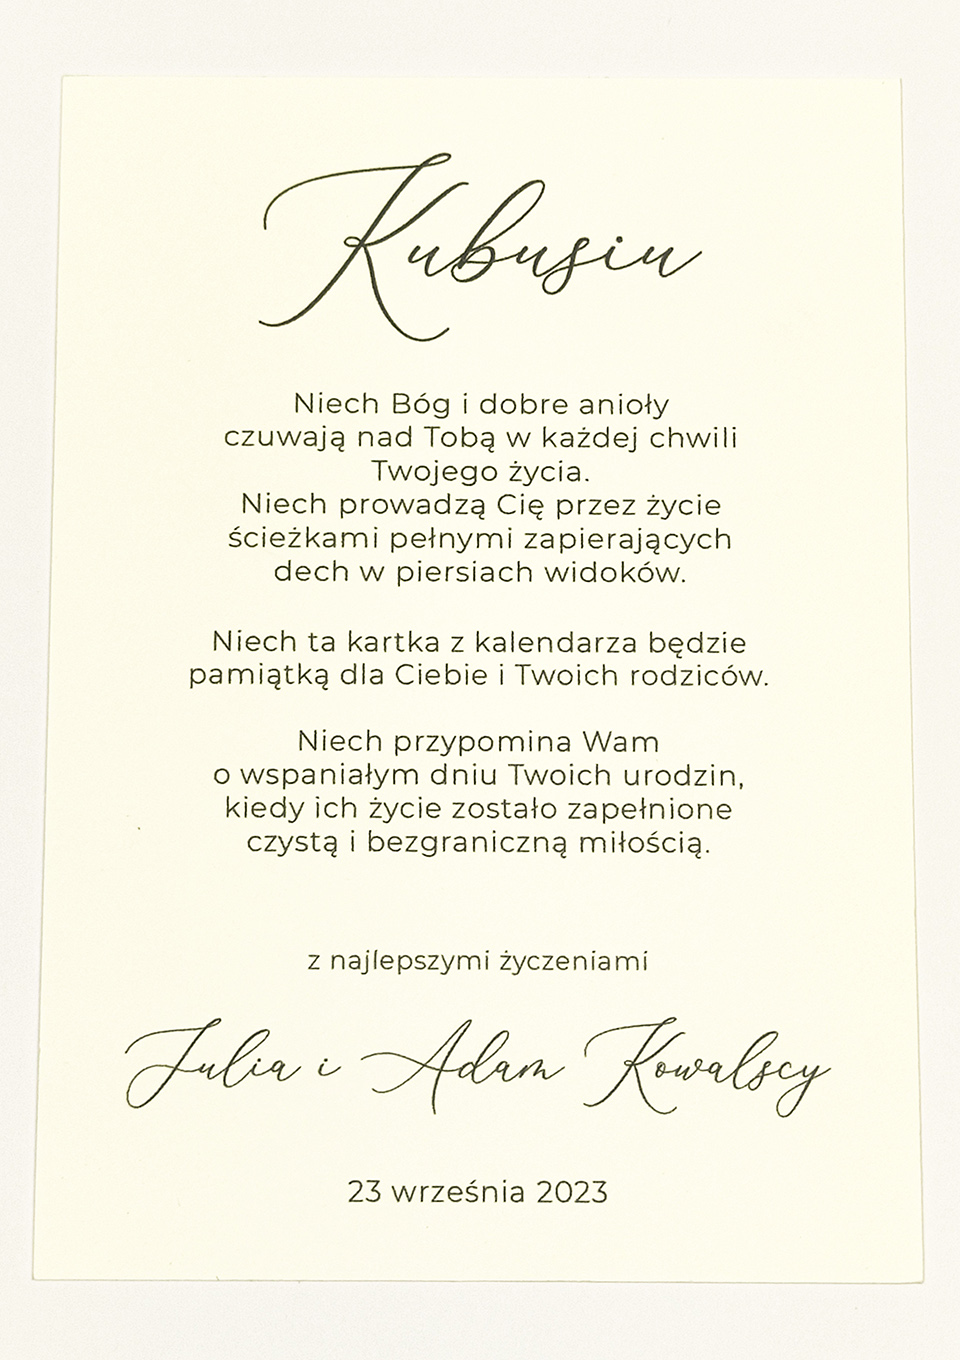 Kubusiu
Niech Bóg i dobre anioły
czuwają nad Tobą w każdej chwili
Twojego życia.
Niech prowadzą Cię przez życie
ścieżkami pełnymi zapierających
dech w piersiach widoków.
Niech ta kartka z kalendarza będzie
pamiątką dla Ciebie i Twoich rodziców.
Niech przypomina Wam
o wspaniałym dniu Twoich urodzin,
kiedy ich życie zostało zapełnione
czystą i bezgraniczną miłością.
z najlepszymi życzeniami
Julia i Adam Kowalscy
23 września 2023